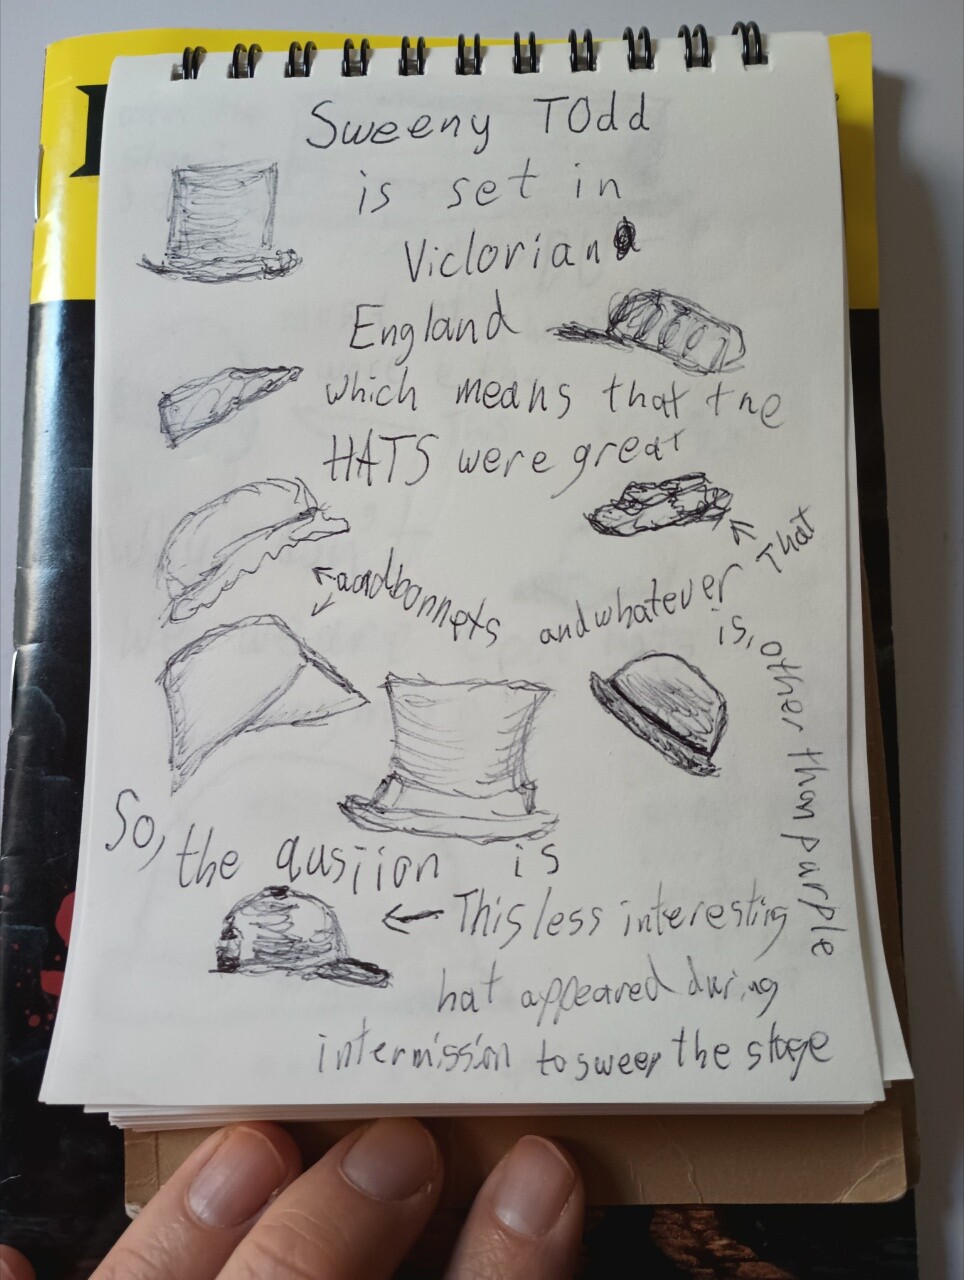 Sweeny TOdd
is set in
Viclorian
England
which means that tne
HATS were great
aandbonnets
andwhatever That
is, other than purple
So, the qusiion is
This less interesting
hat appeared during
intermission to sweep the stage